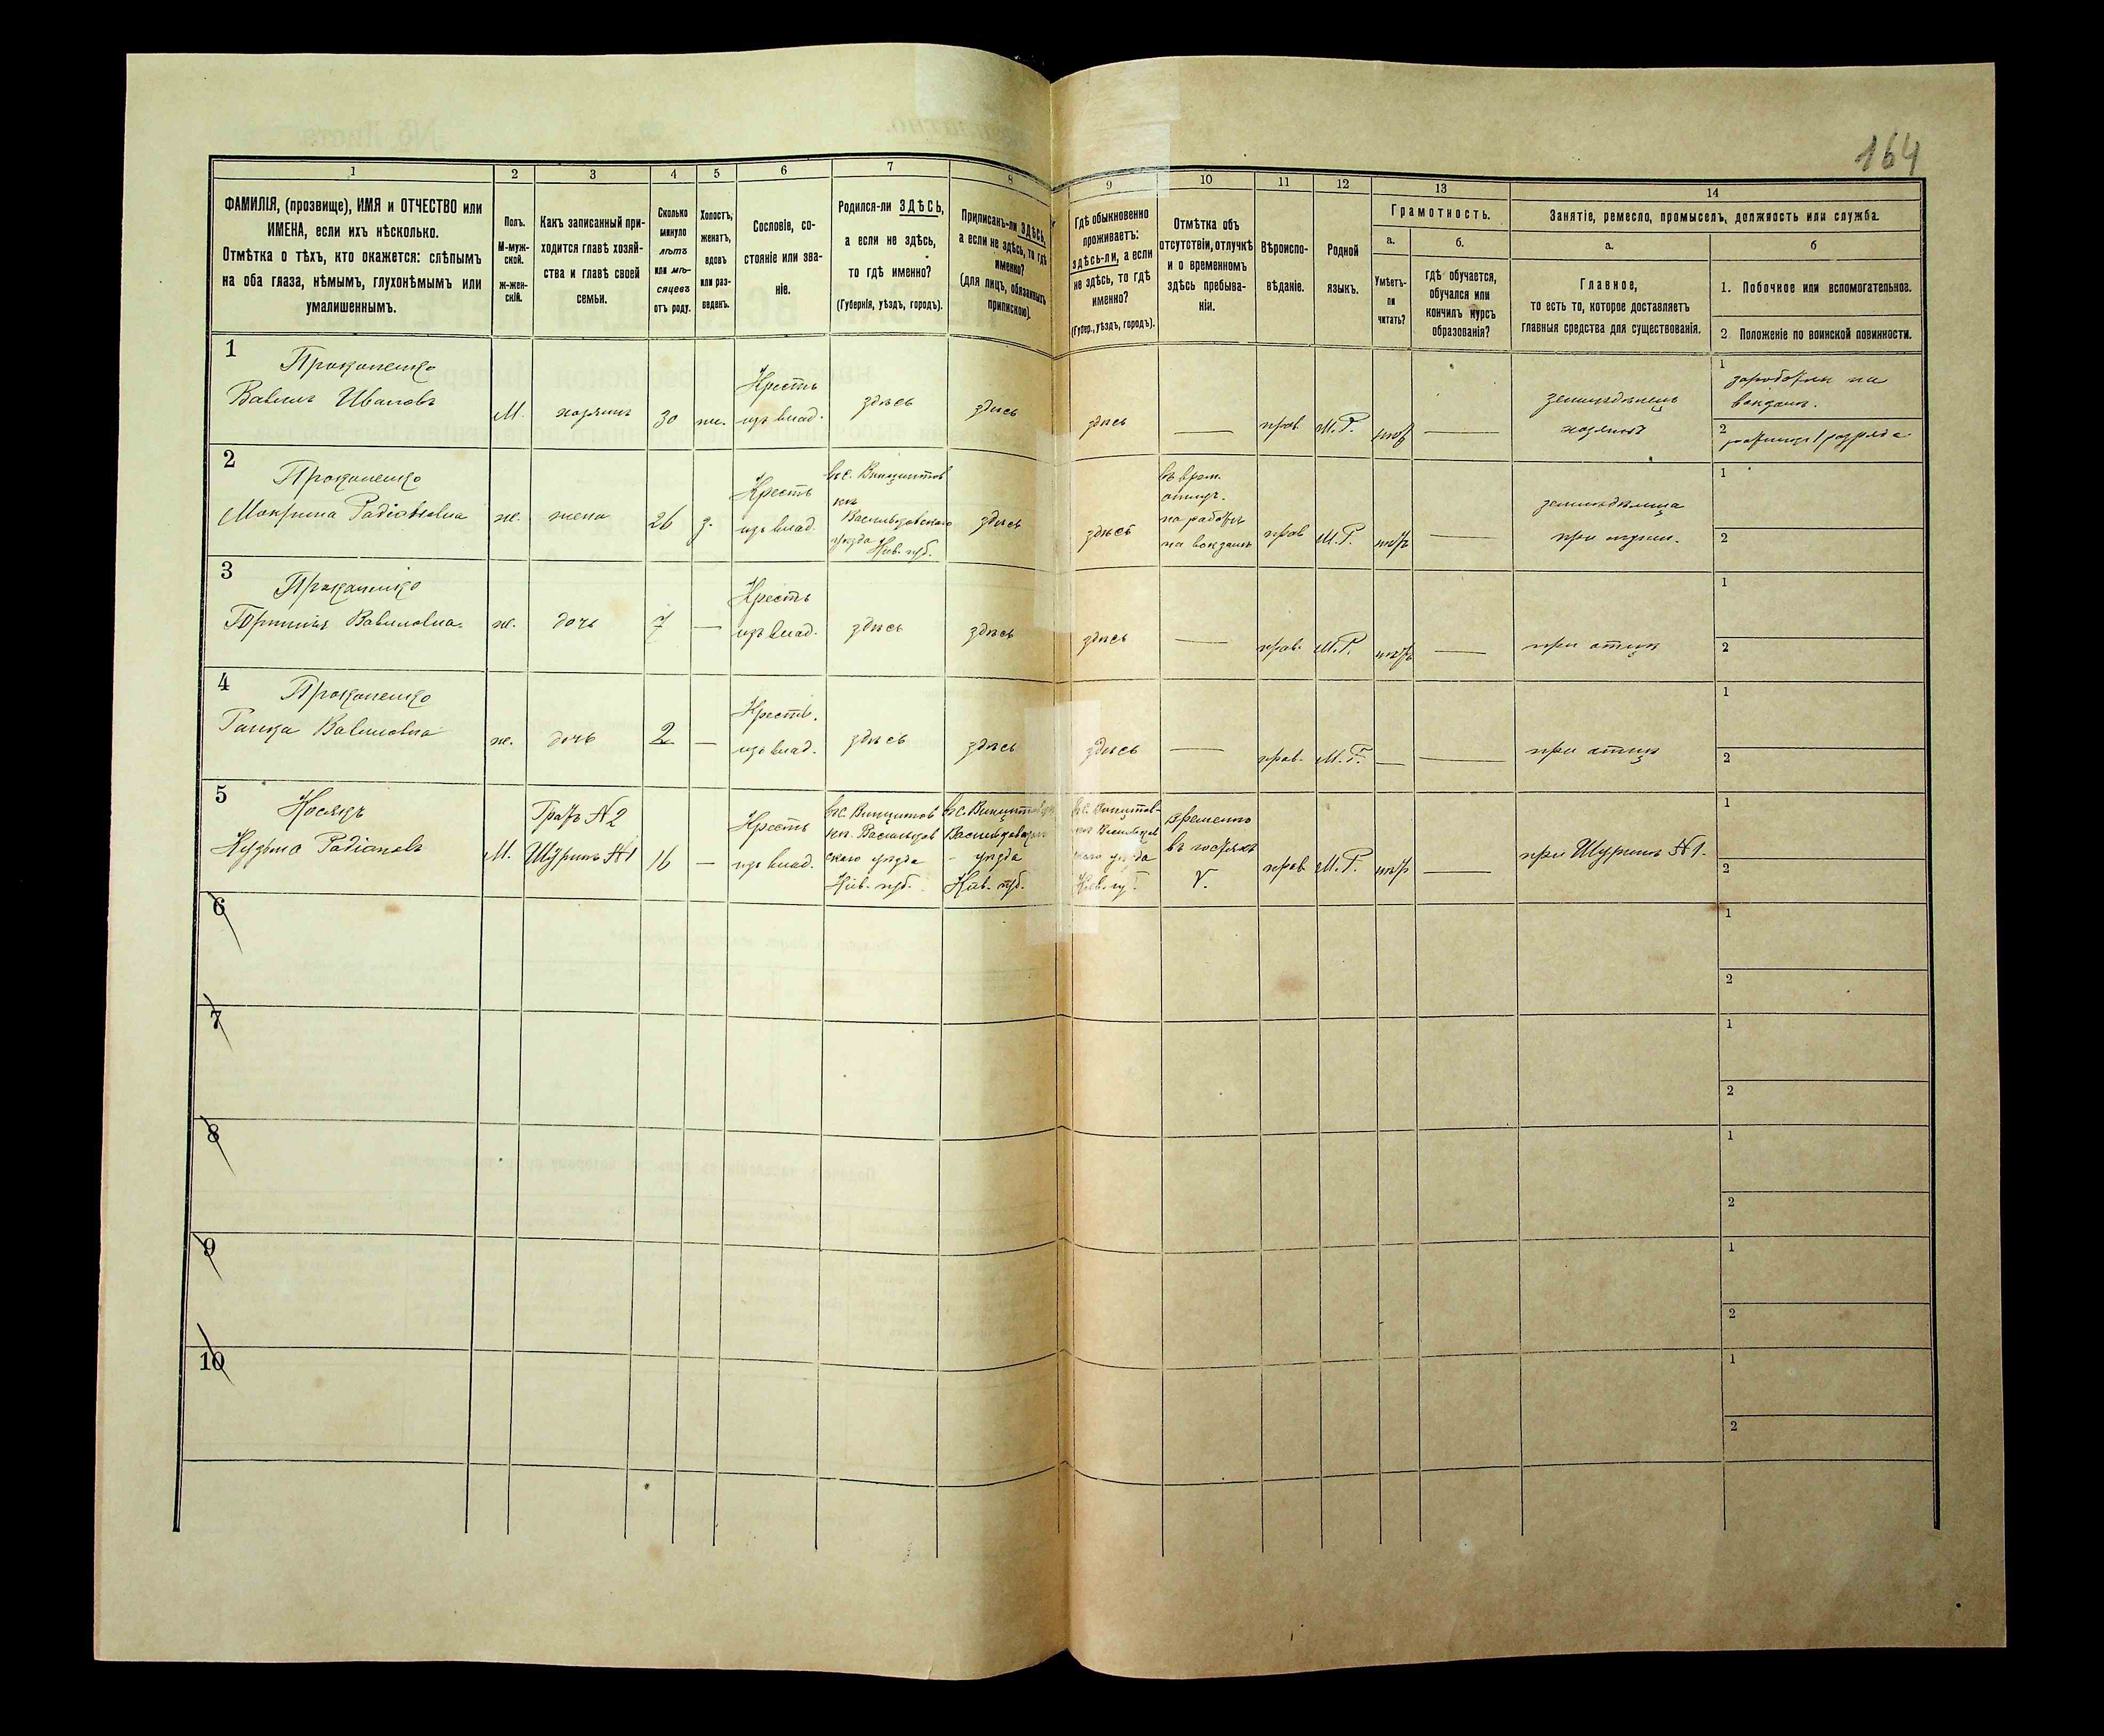 164
1
2
3
4
5
6
7
8
9
10
11
12
13
14
ФАМИЛІЯ, (прозвище), ИМЯ и ОТЧЕСТВО или
ИМЕНА, если ихъ нѣсколько.
Отмѣтка о тѣхъ, кто окажется: слѣпымъ
на оба глаза, нѣмымъ, глухонѣмымъ или
умалишеннымъ.
Полъ.
М-муж-
ской.
ж-жен-
скій.
Какъ записанный при-
ходится главѣ хозяй-
ства и главѣ своей
семьи.
Сколько
минуло
лѣтъ
или мѣ-
сяцевъ
отъ роду.
Холостъ,
женатъ,
вдовъ
или раз-
веденъ.
Сословіе, со-
стояніе или зва-
ніе.
Родился-ли ЗДѢСЬ,
а если не здѣсь,
то гдѣ именно?
(Губернія, уѣздъ, городъ).
Приписанъ-ли ЗДѢСЬ,
а если не здѣсь, то гдѣ
именно?
(для лицъ, обязанныхъ
припискою).
Гдѣ обыкновенно
проживаетъ:
здѣсь-ли, а если
не здѣсь, то гдѣ
именно?
(Губер., уѣздъ, городъ).
Отмѣтка объ
отсутствіи, отлучкѣ
и о временномъ
здѣсь пребыва-
ніи.
Вѣроиспо-
вѣданіе.
Родной
языкъ.
Грамотность.
а.
б.
Умѣетъ-
ли
читать?
гдѣ обучается,
обучался или
кончилъ курсъ
образованія?
Занятіе, ремесло, промыселъ, должность или служба.
а.
б
Главное,
то есть то, которое доставляетъ
главныя средства для существованія.
1. Побочное или вспомогательное.
2. Положеніе по воинской повинности.
1
Прокопенко
Вавилъ Ивановъ
М.
хозяинъ
30
же.
Крестъ
изъ влад.
здѣсь
здѣсь
здѣсь
—
прав
М.Р.
нѣтъ
—
земледѣлецъ
хозяинъ
1
на
вокзалѣ.
2
1 разряда
2
Прокопенко
Макрина Радіоновна
ж.
жена
26
з.
Крестъ
изъ влад.
въ с. Винцентов
кѣ
Васильковскаго
уѣзда Кіев. губ.
здѣсь
здѣсь
въ врем.
отлуч.
на работѣ
на вокзалѣ
прав
М.Р.
нѣтъ
—
земледѣлица
при мужѣ.
1
2
3
Прокопенко
Вавиловна
ж.
дочь
7
—
Крестъ
изъ влад.
здѣсь
здѣсь
здѣсь
—
прав.
М.Р.
нѣтъ
—
при отцѣ
1
2
4
Прокопенко
Ганка Вавиловна
ж.
дочь
2
—
Крестъ.
изъ влад.
здѣсь
здѣсь
здѣсь
—
прав.
М.Р.
—
—
при отцѣ
1
2
5
Кузьма Радіоновъ
М.
Братъ №2
Шуринъ №1
16
—
Крестъ
изъ влад.
въ с. Винцентов
кѣ. Васильков
скаго уѣзда
Кіев. губ.
въ с. Винцентовкѣ
Васильковскаго
уѣзда
Кіев. губ.
въ с. Винцентов-
кѣ Васильков
скаго уѣзда
Кіев. губ.
временно
въ гостяхъ
V.
прав
М.Р.
нѣтъ
—
при Шуринѣ №1.
1
2
6
1
2
7
1
2
8
1
2
9
1
2
10
1
2